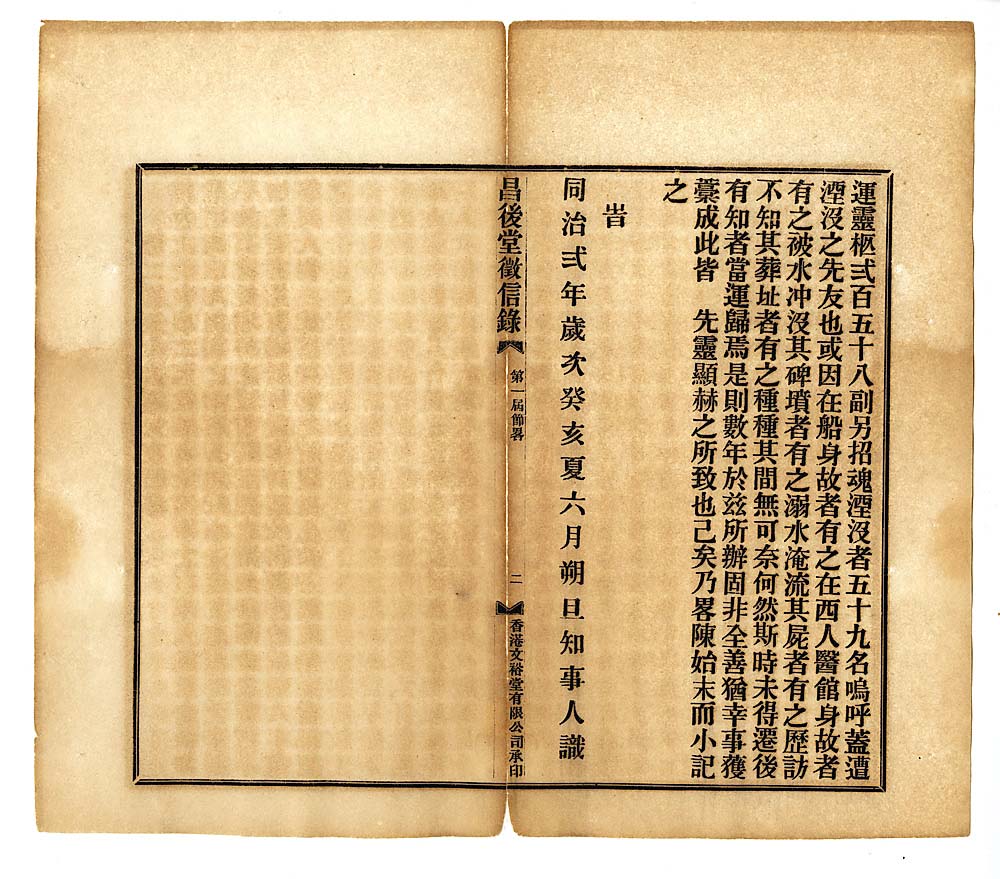 運靈柩弍百五十八副另招魂湮沒者五十九名嗚呼蓋遭
湮沒之先友也或因在船身故者有之在西人醫館身故者
有之破水冲沒其碑墳者有之溺水淹流其屍者有之歷訪
不知其葬址者有之種種其間無可奈何然斯時未得遷後
有知者當運歸焉是則數年於兹所辦固非全善猶幸事獲
藁成此皆　先靈顯赫之所致也己矣乃畧陳始末而小記
之
旹
同治弍年歲次癸亥夏六月朔旦知事人識
昌後堂徵信錄
第一屆節畧
二
香港文裕堂有限公司承印